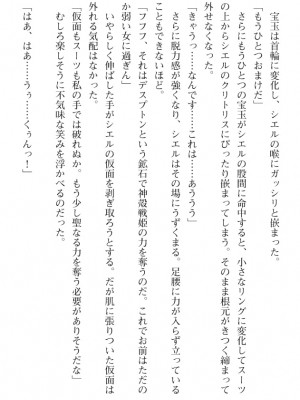 宝玉は首輪に変化し、シエルの喉にガッシリと嵌まった。
「もうひとつおまけだ」
さらにもうひとつの宝玉がシエルの股間に命中すると、小さなリングに変化してスーツ
の上からシエルのクリトリスにぴったり嵌まってしまう。そのまま根元がきつく締まって
外せなくなった。
「きゃうっ……なんです……これは……あううう」
さらに脱力感が強くなり、シエルはその場にうずくまる。足腰に力が入らず立っている
こともできないほど。
「フフフ、それはデスプトンという鉱石で神殻戦姫の力を奪うのだ。これでお前はただの
か弱い女に過ぎん」
いやらしく伸ばした手がシエルの仮面を剥ぎ取ろうとする。だが肌に張りついた仮面は
外れる気配はなかった。
「仮面もスーツも私の手では破れぬか。もう少し聖なる力を奪う必要がありそうだな」
むしろ楽しそうに不気味な笑みを浮かべるのだった。
「はあ、はあ……うぅ……くぅんっ！」